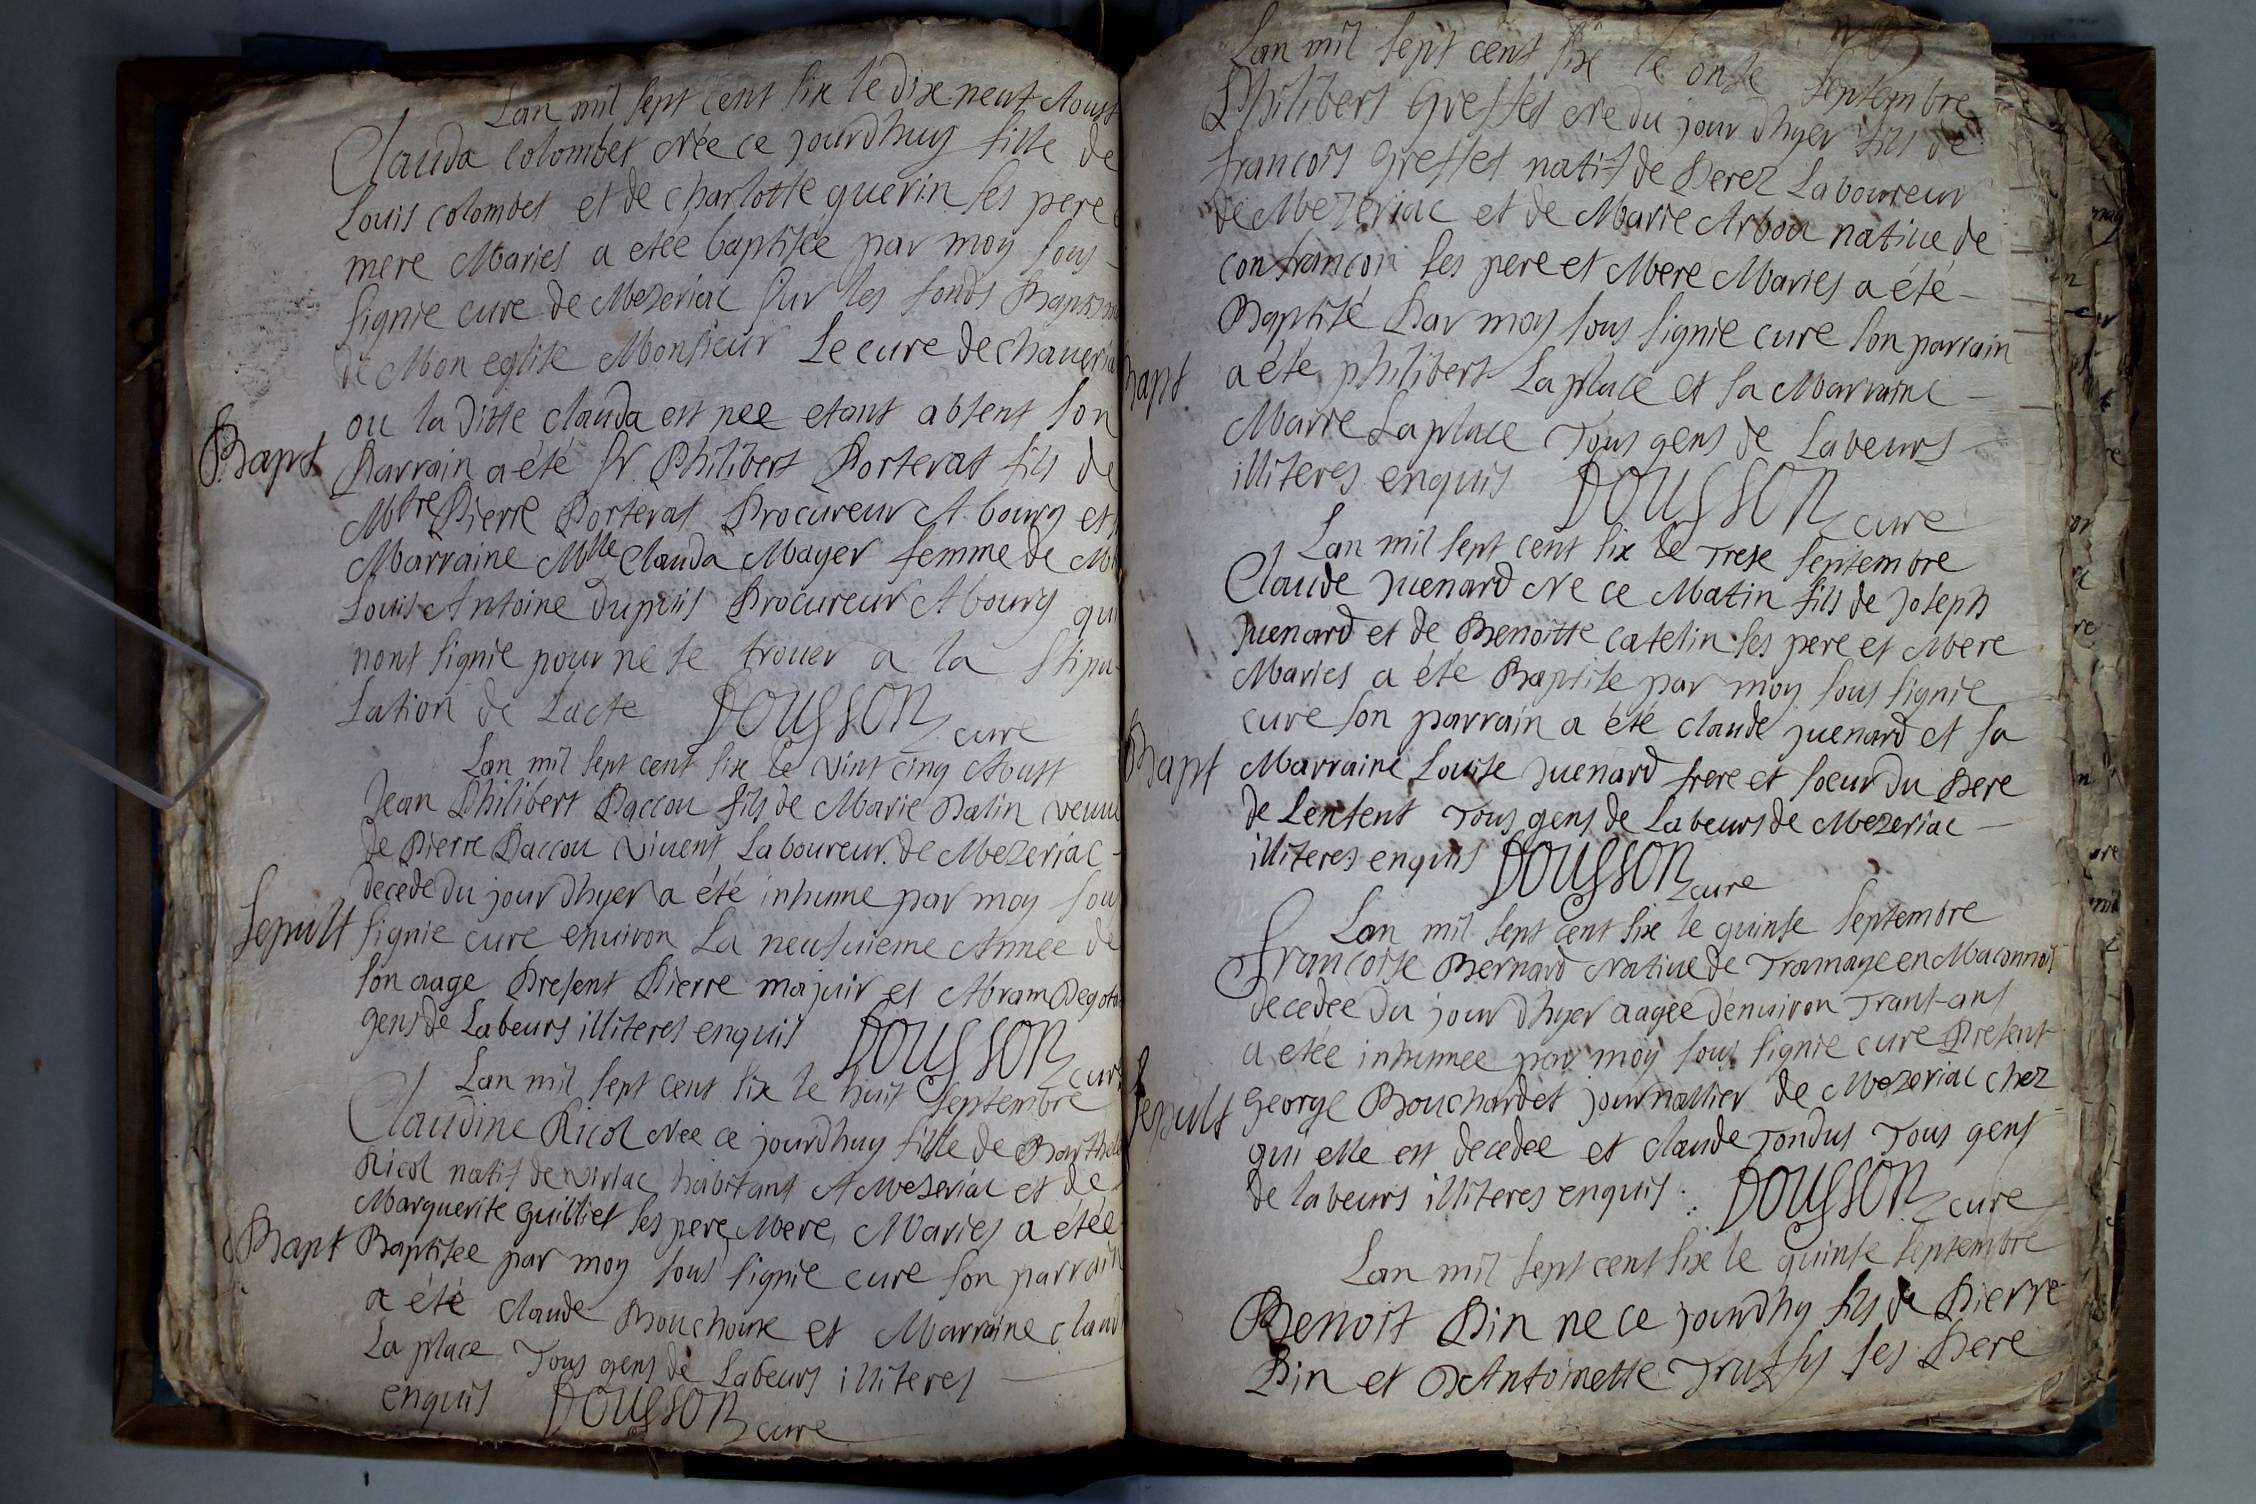 Lan mil sept cent six le dix neuf Aoust
Clauda Colombet Née ce jourdhuy fille de
Louis Colombet et de Charlotte guerin ses pere
mere Maries a etee baptisée par moy sous
signie cure de Mezeriac sur les fonds
de Mon eglise Monsieur Le cure de
ou la ditte Clauda est nee etant absent son
Bapt
Parrain a été Sr. Philibert Porterat fils de
Mtre Pierre Porterat Procureur A bourg et
Marraine Mlle Clauda Mayer femme de
Louis Antoine Dupuis Procureur A bourg
nont signie pour ne se trouer a la stipu
Lation de Lacte DOUSSON cure
Lan mil sept cent six le vint cinq Aoust
Jean Philibert Paccou fils de Marie Palin
de Pierre Paccou viuent Laboureur de Mezeriac
decede du jour Dhyer a été inhume par moy
Sepult
signie cure enuiron La neufuieme Annee de
son aage Present Pierre majuir et Abram
gens de Labeurs illiteres enquis DOUSSON cure
Lan mil sept cent six le huit Septembre
Claudine Ricol Née ce jourdhuy fille de
Ricol natif de viriac habitant A Mezeriac et de
Marguerite guilliet ses pere Mere Maries a étée
Bapt
Baptisee par moy sous signie cure son parrain
a été Claude Bouchoux et Marraine
La place Tous gens de Labeurs illiteres
enquis DOUSSON cure
Lan mil sept cent six le onse Septembre
Philibert Greffet Ne du jour dhyer fils de
francois Greffet natif de Perez Laboureur
de Mezeriac et de Marie Arbou natiue de
confrancon ses pere et Mere Maries a été
Baptisé Par moy sous signie cure son parrain
Bapt
a été philibert Laplace et sa Marraine
Marie Laplace Tous gens de Labeurs
illiteres enquis DOUSSON cure
Lan mil sept cent six le Trese Septembre
Claude Juenard Ne ce Matin fils de Joseph
Juenard et de Benoitte catelin ses pere et Mere
Maries a été Baptise par moy sous signie
cure son parrain a été claude juenard et sa
Bapt
Marraine Louise juenard frere et soeur du Pere
de Lenfent Tous gens de Labeurs de Mezeriac
illiteres enquis DOUSSON cure
Lan mil sept cent six le quinse Septembre
francoise Bernard Natiue de Tramaye en Maconnois
decedée du jour Dhyer aagée denuiron Trant ans
a etée inhumee par moy sous signie cure Present
Sepult
george Bouchardet journallier de Mezeriac chez
qui elle est decedee et claude Tondus Tous gens
de labeurs illiteres enquis. DOUSSON cure
Lan mil sept cent six le quinse Septembre
Benoist Pin ne ce jourdhy fils de Pierre
Pin et DAntoinette Truffy ses Pere